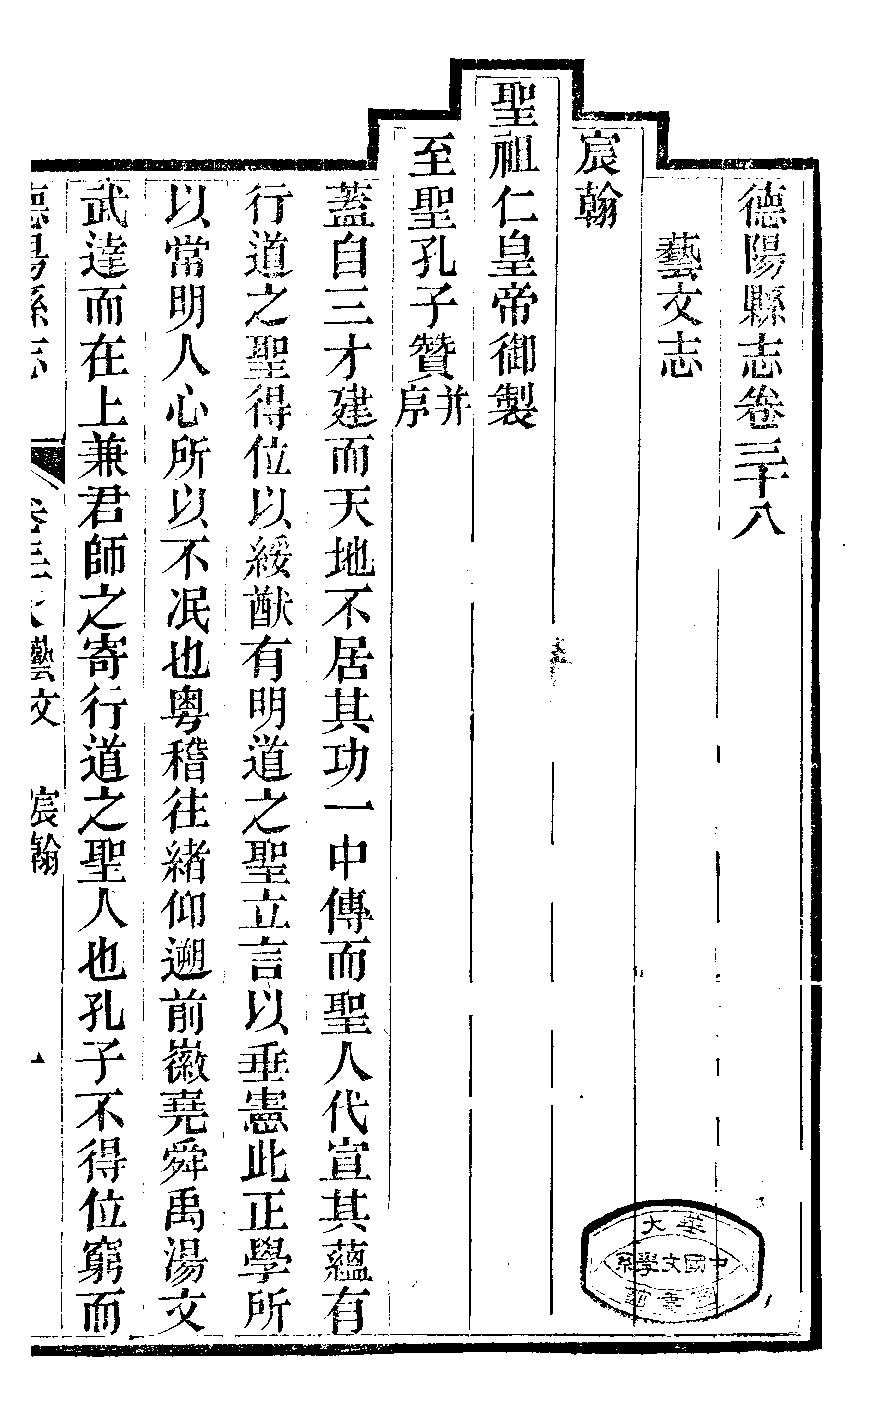 德陽縣志卷三十八
藝文志
宸翰
聖祖仁皇帝御製
至聖孔子贊并序
蓋自三才建而天地不居其功一中傳而聖人代宣其蘊有
行道之聖得位以綏猷有明道之聖立言以垂憲此正學所
以常明人心所以不泯也粵稽往緒仰遡前徽堯舜禹湯文
武達而在上兼君師之寄行道之聖人也孔子不得位窮而
德陽縣志 藝文 宸翰
華大
中國文學系